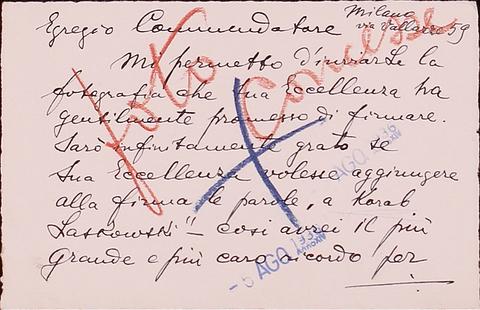 Milano
via Vallazze 59
Egregio Commendatore
Mi permetto d'inviarLe la
fotografia che Sua Eccellenza ha
gentilmente promesso di firmare.
Sarò infinitamente grato se
Sua Eccellenza volesse aggiungere
alla firma le parole, a Korab
Laskowski" – così avrei il più
grande e più caro ricordo per
foto
Concesse
AGO. 193
- 6 AGO 193